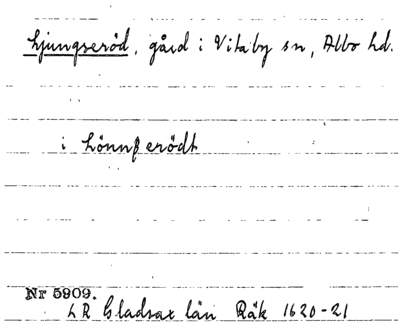 Ljungseröd, gård i Vitaby sn, Albo hd.
i Lönnßerödt
Nr 5909.
LR Gladsax län Räk 1620-21